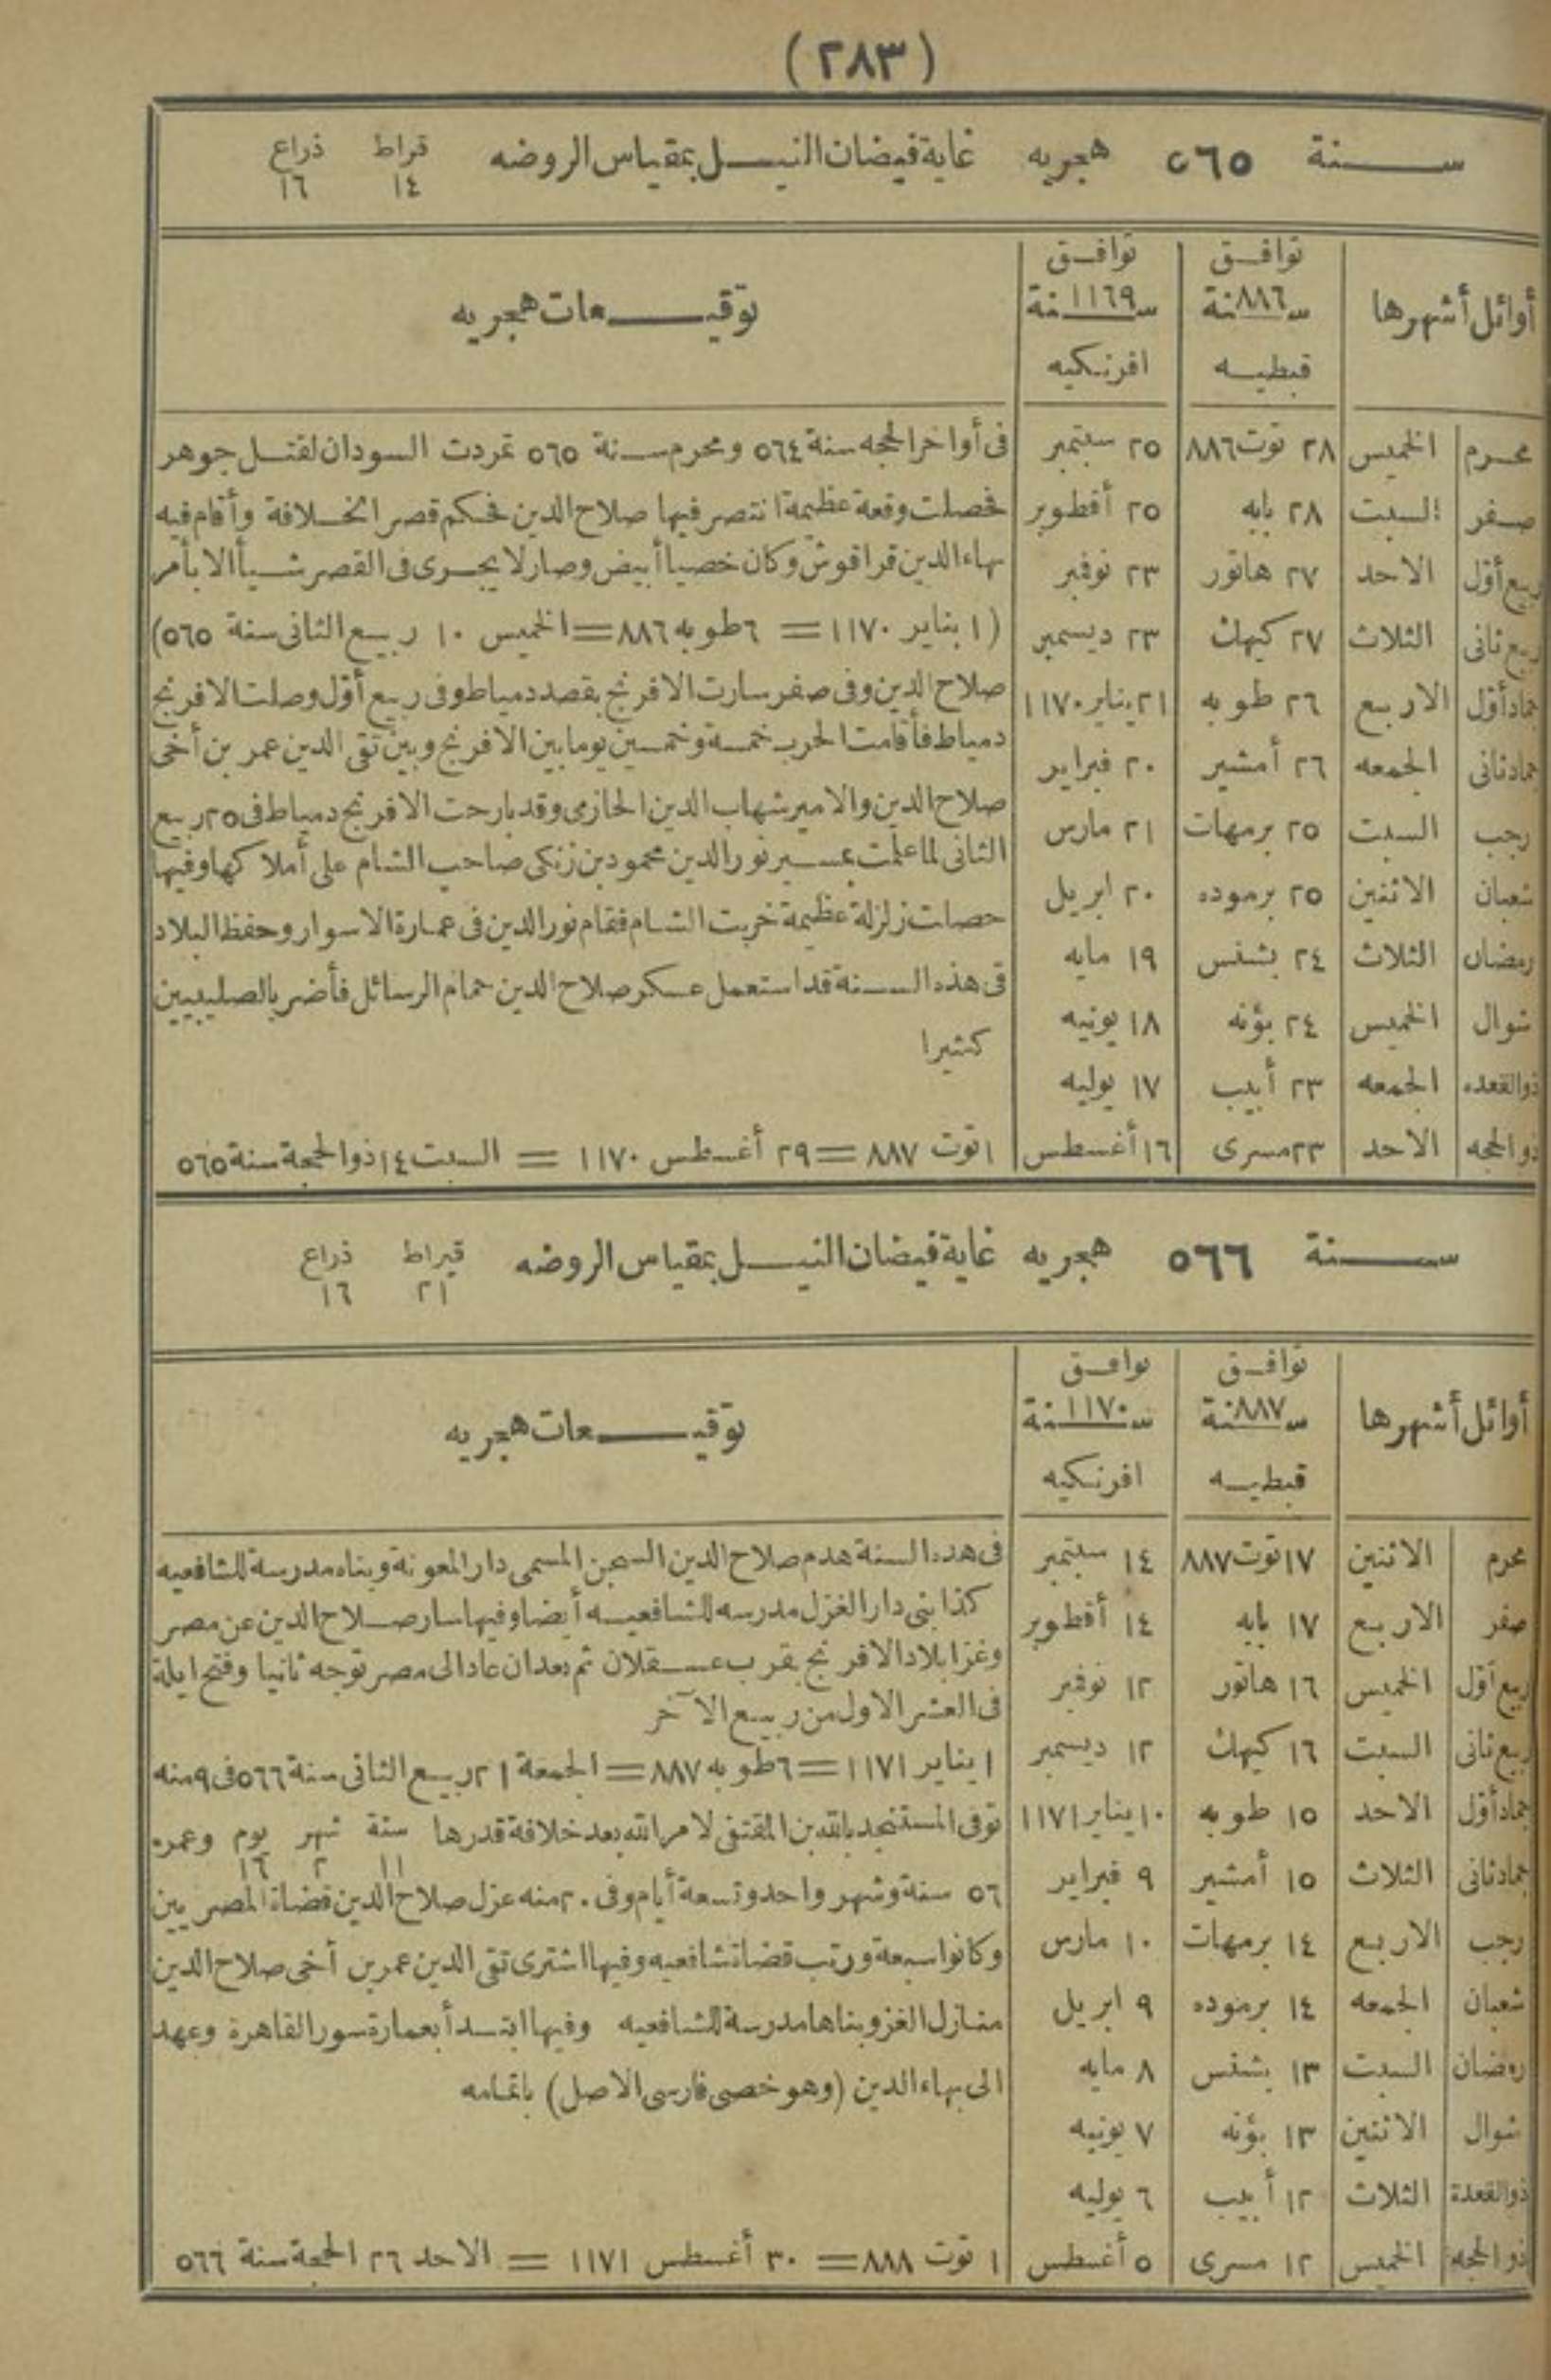 (٢٨٣)
سنة ٥٦٥ هجريه غاية فيضان النيل بمقياس الروضه قراط ذراع
١٤ ١٦
أوائل أشهرها توافق سنة ٨٨٦ قبطيه توافق سنة ١١٦٩ افرنكيه توقيعات هجريه
محرم الخميس ٢٨ توت ٨٨٦ ٢٥ سبتمبر
صفر السبت ٢٨ بابه ٢٥ أقطوبر
ربيع أول الاحد ٢٧ هاتور ٢٣ نوفمبر
ربيع ثانى الثلاث ٢٧ كيهك ٢٣ ديسمبر
جماد أول الاربع ٢٦ طوبه ٢١ يناير ١١٧٠
جماد ثانى الجمعه ٢٦ أمشير ٢٠ فبراير
رجب السبت ٢٥ برمهات ٢١ مارس
شعبان الاثنين ٢٥ برموده ٢٠ ابريل
رمضان الثلاث ٢٤ بشنس ١٩ مايه
شوال الخميس ٢٤ بؤنه ١٨ يونيه
ذو القعده الجمعه ٢٣ أبيب ١٧ يوليه
ذو الحجه الاحد ٢٣ مسرى ١٦ أغسطس
فى أواخر الحجه سنة ٥٦٤ ومحرم سنة ٥٦٥ تمردت السودان لقتل جوهر
فحصلت وقعة عظيمة انتصر فيها صلاح الدين فحكم قصر الخلافة وأقام فيه
بهاء الدين قراقوش وكان خصيا أبيض وصار لا يجرى فى القصر شيأ الا بأمر
(١ يناير ١١٧٠ = ٦ طوبه ٨٨٦ = الخميس ١٠ ربيع الثانى سنة ٥٦٥)
صلاح الدين وفى صفر سارت الافرنج بقصد دمياط وفى ربيع أول وصلت الافرنج
دمياط فأقامت الحرب خمسة وخمسين يوما بين الافرنج وبين تقى الدين عمر بن أخى
صلاح الدين والامير شهاب الدين الحازمى وقد بارحت الافرنج دمياط فى ٢٥ ربيع
الثانى لما علمت بمسير نور الدين محمود بن زنكى صاحب الشام على أملاكها وفيها
حصلت زلزلة عظيمة خربت الشام فقام نور الدين فى عمارة الاسوار وحفظ البلاد
فى هذه السنة قد استعمل عسكر صلاح الدين حمام الرسائل فأضر بالصليبيين
كثيرا
١ توت ٨٨٧ = ٢٩ أغسطس ١١٧٠ = السبت ١٤ ذو الحجة سنة ٥٦٥
سنة ٥٦٦ هجريه غاية فيضان النيل بمقياس الروضه قيراط ذراع
٢١ ١٦
أوائل أشهرها توافق سنة ٨٨٧ قبطيه توافق سنة ١١٧٠ افرنكيه توقيعات هجريه
محرم الاثنين ١٧ توت ٨٨٧ ١٤ سبتمبر
صفر الاربع ١٧ بابه ١٤ أقطوبر
ربيع أول الخميس ١٦ هاتور ١٢ نوفمبر
ربيع ثانى السبت ١٦ كيهك ١٢ ديسمبر
جماد أول الاحد ١٥ طوبه ١٠ يناير ١١٧١
جماد ثانى الثلاث ١٥ أمشير ٩ فبراير
رجب الاربع ١٤ برمهات ١٠ مارس
شعبان الجمعه ١٤ برموده ٩ ابريل
رمضان السبت ١٣ بشنس ٨ مايه
شوال الاثنين ١٣ بؤنه ٧ يونيه
ذو القعدة الثلاث ١٢ أبيب ٦ يوليه
ذو الحجه الخميس ١٢ مسرى ٥ أغسطس
فى هذه السنة هدم صلاح الدين السجن المسمى دار المعونة وبناه مدرسة للشافعيه
كذا بنى دار الغزل مدرسه للشافعيه أيضا وفيها سار صلاح الدين عن مصر
وغزا بلاد الافرنج بقرب عسقلان ثم بعد ان عاد الى مصر توجه ثانيا وفتح ايلة
فى العشر الاول من ربيع الآخر
١ يناير ١١٧١ = ٦ طوبه ٨٨٧ = الجمعة ٢١ ربيع الثانى سنة ٥٦٦ فى ٩ منه
توفى المستنجد بالله بن المقتفى لامر الله بعد خلافة قدرها سنة شهر يوم وعمره
١١ ٢ ١٦
٥٦ سنة وشهر واحد وتسعة أيام وفى ٢٠ منه عزل صلاح الدين قضاة المصريين
وكانوا سبعة ورتب قضاة شافعيه وفيها اشترى تقى الدين عمر بن أخى صلاح الدين
منازل الغز وبناها مدرسة للشافعيه وفيها ابتدأ بعمارة سور القاهرة وعهد
الى بهاء الدين (وهو خصى فارسى الاصل) باتمامه
١ توت ٨٨٨ = ٣٠ أغسطس ١١٧١ = الاحد ٢٦ الحجة سنة ٥٦٦